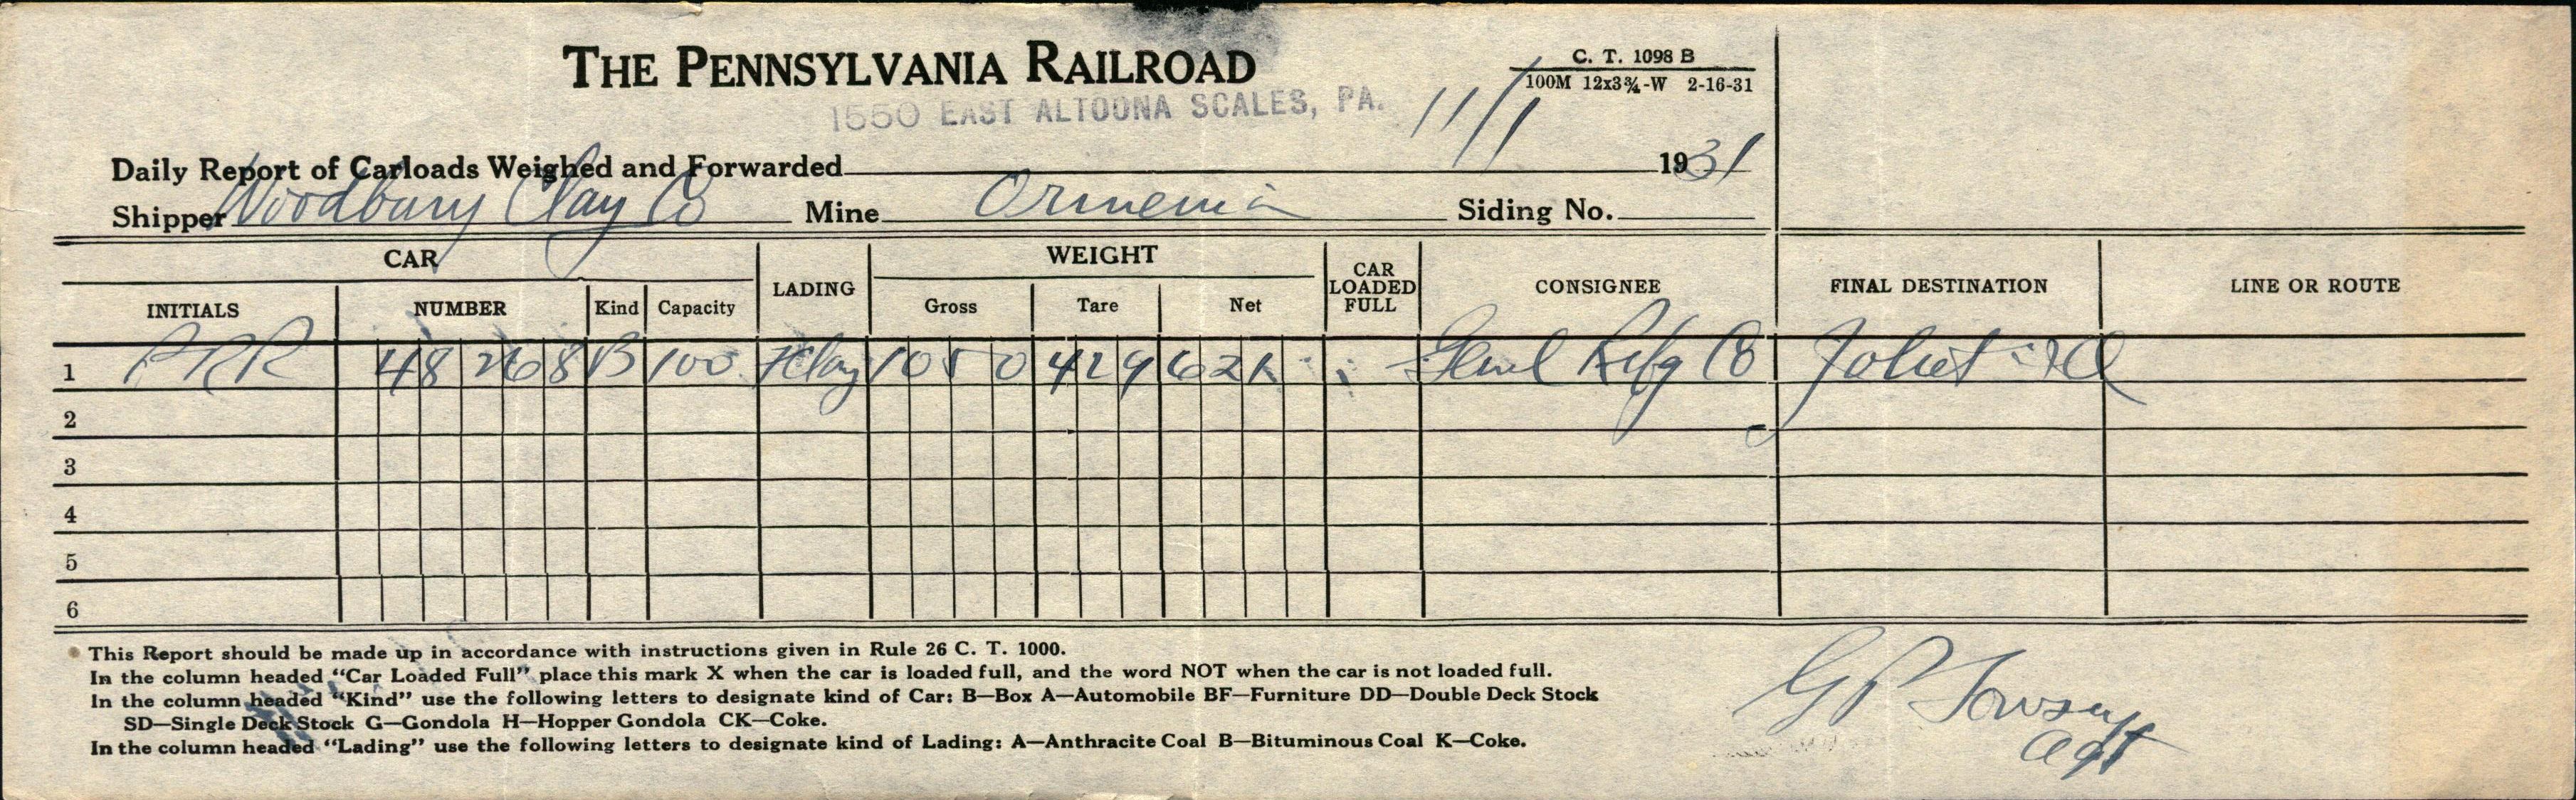 THE PENNSYLVANIA RAILROAD
C. T. 1098 B
100M 12x3¾-W 2-16-31
1550 EAST ALTOONA SCALES, PA.
11/1
Daily Report of Carloads Weighed and Forwarded 1931
Shipper Woodbury Clay Co Mine Ormenia Siding No.
CAR LADING WEIGHT CAR LOADED FULL CONSIGNEE FINAL DESTINATION LINE OR ROUTE
INITIALS NUMBER Kind Capacity Gross Tare Net
1 PRR 48268 B 100 Clay 1050 429 621 Genl Refg Co Joliet Ill
2
3
4
5
6
This Report should be made up in accordance with instructions given in Rule 26 C. T. 1000.
In the column headed "Car Loaded Full" place this mark X when the car is loaded full, and the word NOT when the car is not loaded full.
In the column headed "Kind" use the following letters to designate kind of Car: B—Box A—Automobile BF—Furniture DD—Double Deck Stock
SD—Single Deck Stock G—Gondola H—Hopper Gondola CK—Coke.
In the column headed "Lading" use the following letters to designate kind of Lading: A—Anthracite Coal B—Bituminous Coal K—Coke.
G P
Agt